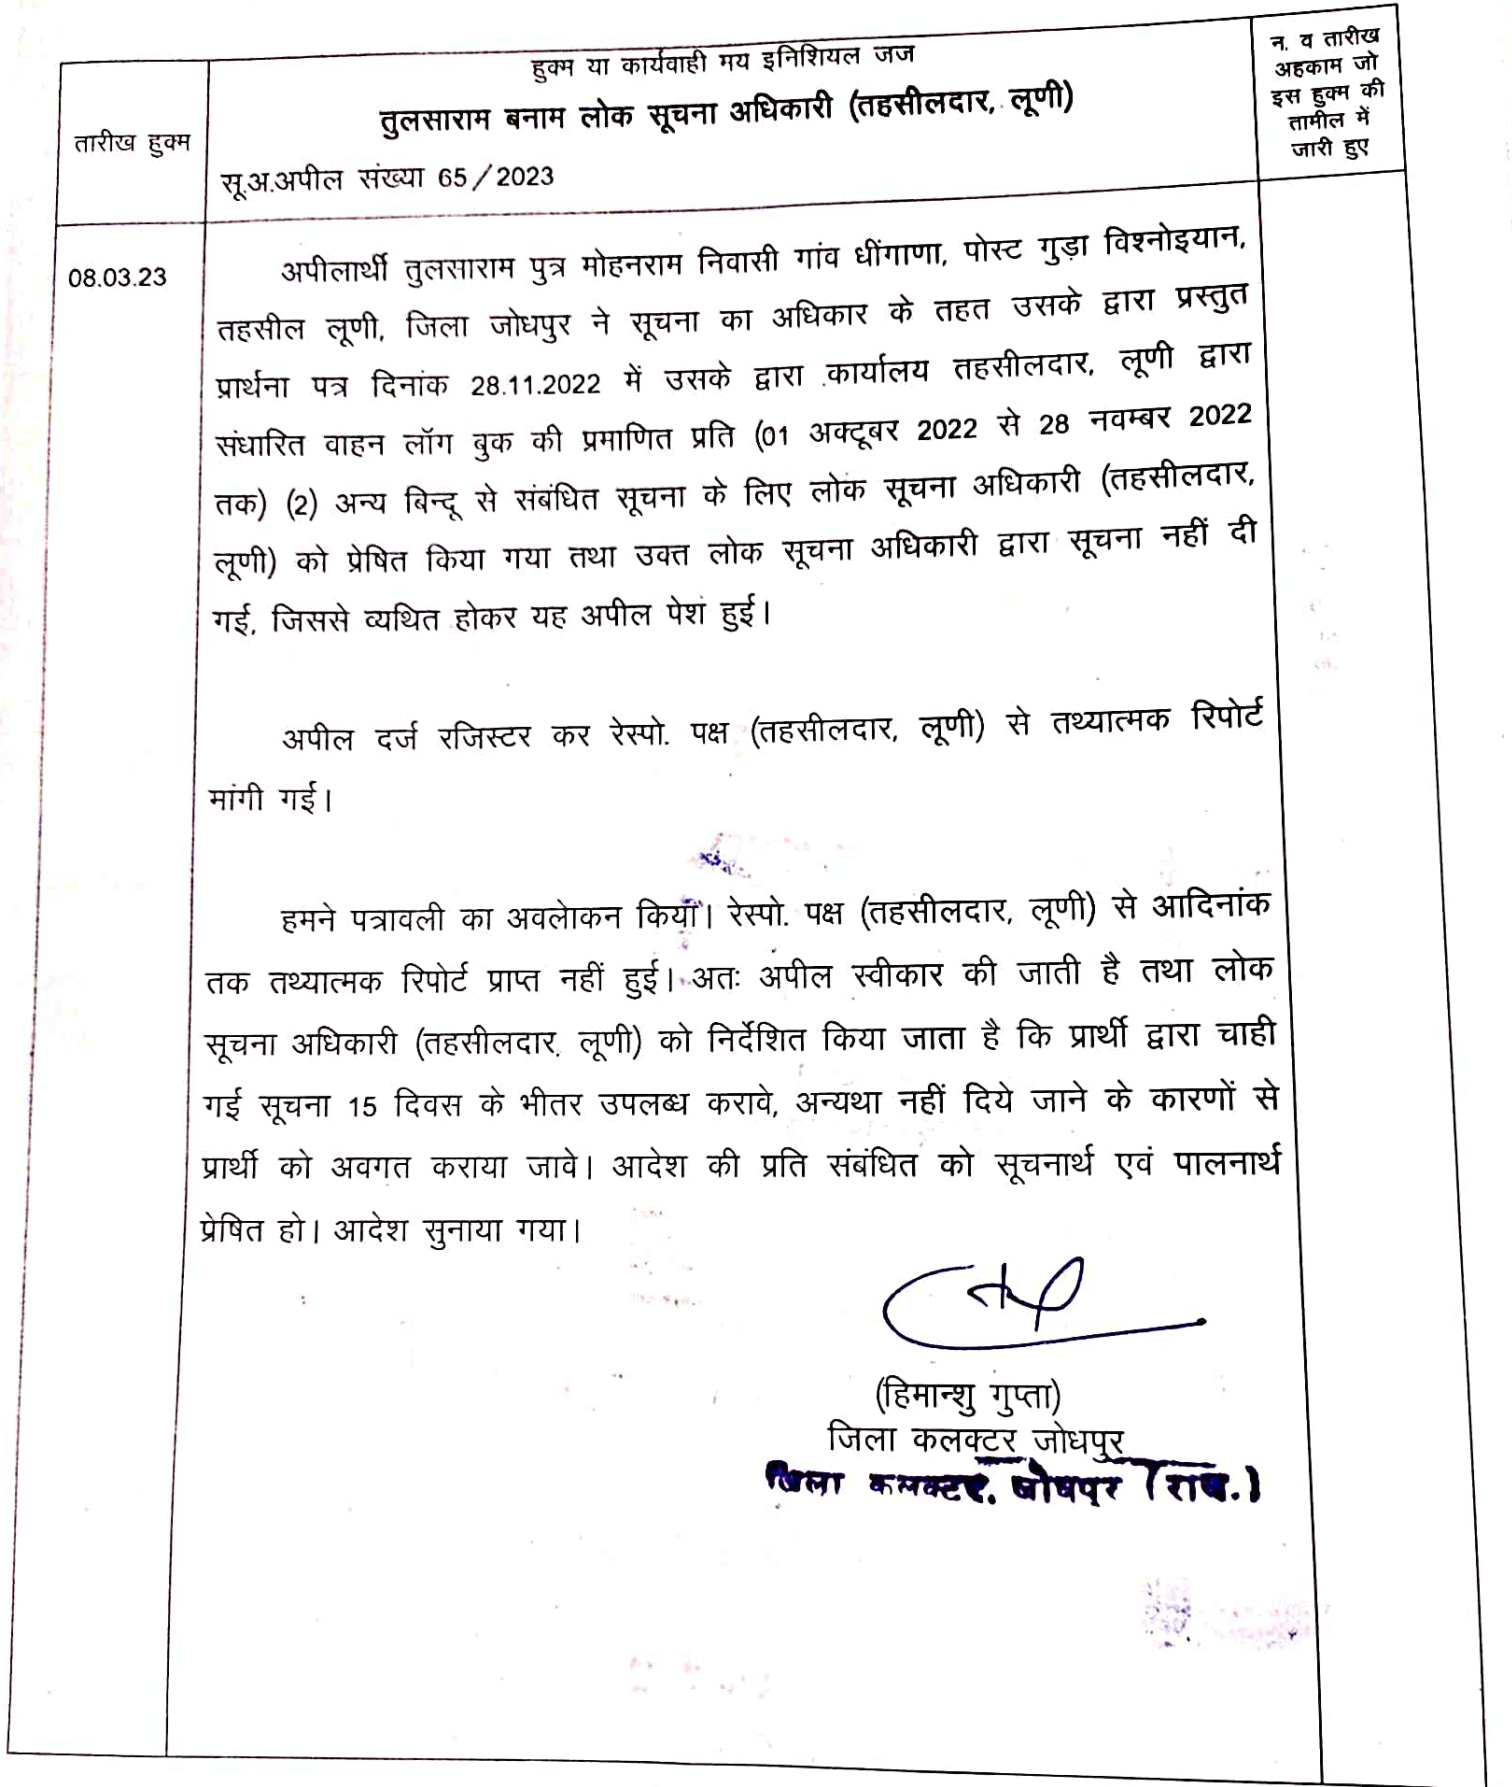 हुक्म या कार्यवाही मय इनिशियल जज
तुलसाराम बनाम लोक सूचना अधिकारी (तहसीलदार, लूणी)
तारीख हुक्म
सू.अ.अपील संख्या 65/2023
न. व तारीख
अहकाम जो
इस हुक्म की
तामील में
जारी हुए
08.03.23
अपीलार्थी तुलसाराम पुत्र मोहनराम निवासी गांव धींगाणा, पोस्ट गुड़ा विश्नोइयान,
तहसील लूणी, जिला जोधपुर ने सूचना का अधिकार के तहत उसके द्वारा प्रस्तुत
प्रार्थना पत्र दिनांक 28.11.2022 में उसके द्वारा कार्यालय तहसीलदार, लूणी द्वारा
संधारित वाहन लॉग बुक की प्रमाणित प्रति (01 अक्टूबर 2022 से 28 नवम्बर 2022
तक) (2) अन्य बिन्दू से संबंधित सूचना के लिए लोक सूचना अधिकारी (तहसीलदार,
लूणी) को प्रेषित किया गया तथा उक्त लोक सूचना अधिकारी द्वारा सूचना नहीं दी
गई, जिससे व्यथित होकर यह अपील पेश हुई।
अपील दर्ज रजिस्टर कर रेस्पो. पक्ष (तहसीलदार, लूणी) से तथ्यात्मक रिपोर्ट
मांगी गई।
हमने पत्रावली का अवलोकन किया। रेस्पो. पक्ष (तहसीलदार, लूणी) से आदिनांक
तक तथ्यात्मक रिपोर्ट प्राप्त नहीं हुई। अतः अपील स्वीकार की जाती है तथा लोक
सूचना अधिकारी (तहसीलदार, लूणी) को निर्देशित किया जाता है कि प्रार्थी द्वारा चाही
गई सूचना 15 दिवस के भीतर उपलब्ध करावे, अन्यथा नहीं दिये जाने के कारणों से
प्रार्थी को अवगत कराया जावे। आदेश की प्रति संबंधित को सूचनार्थ एवं पालनार्थ
प्रेषित हो। आदेश सुनाया गया।
(हिमान्शु गुप्ता)
जिला कलक्टर जोधपुर
जिला कलक्टर, जोधपुर (राज.)